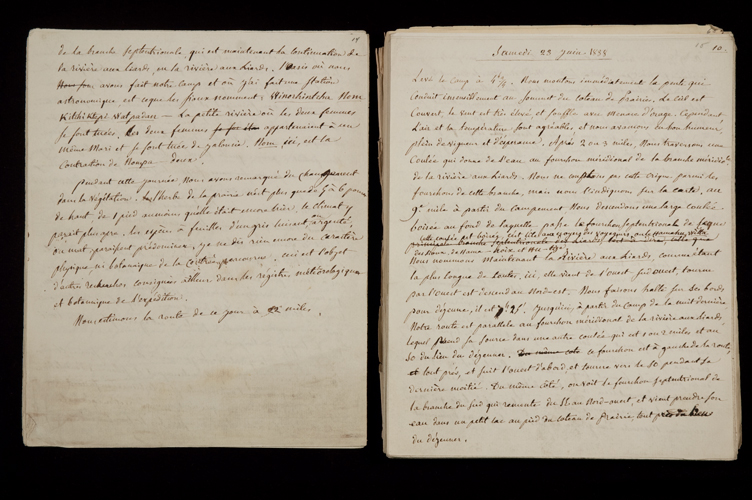 14
de la branche septentrionale, qui est maintenant la continuation de
la rivière aux Liards, en la rivière aux Liards. où nous
avons fait notre camp et où j'ai fait une station
astronomique est ce que les Sioux nomment
Kitchiktepi Watpadan — La petite rivière où les deux femmes
se sont tuées. Les deux femmes appartenaient à un
même mari et se sont tuées de jalousie. Nom, ici, est la
Contraction de Nonpa - deux.
Pendant cette journée nous avons remarqué du changement
dans la végétation. L'herbe de la prairie n'est plus que de
de haut de 1 pied au moins qu'elle était encore hier, le climat y
parait plus sec. les à feuilles d'un gris luisant, argenté,
ou mat paraissent prédominer. Je ne dis rien encore du caractère
physique ni botanique de la contrée parcourue, ceci est l'objet
d'autres recherches consignées ailleurs dans les registres météorologiques
et botanique de l'expédition.
Nous estimons la route de ce jour à 22 miles.
15 10.
Samedi 23 Juin 1838
Levé le camp à Nous montons immédiatement la pente qui
conduit insensiblement au sommet du coteau de Prairie. Le ciel est
couvert, le vent est très élevé et souffle avec menace d'orage. Cependant
l'air et la température sont agréables, et nous avançons de bon humeur,
plein de vigueur et d'espérance. Après 2 ou 3 miles, nous traversons une
Coulée qui donne de l'eau au fourchon méridional de la branche méridionale
de la rivière aux Liards. Nous ne pas cette origine parmi les
fourchon de cette branche, mais nous l'indiquons sur la carte, au
9e mile à partir du campement nous descendons une large coulée
boisée au fond de laquelle passe le fourchon septentrional de la
Nous nommons maintenant la Rivière aux Liards, comme étant
la plus longue de toutes, ici, elle vient de l'ouest sud ouest, tourne
par l'ouest et descend au Nord-est. Nous faisons halte sur ses bords
pour déjeuner, il est Jusqu'ici, à partir du camp de la nuit dernière
Notre route est parallèle au fourchon méridional de la rivière aux Liards
lequel prend sa source dans une autre coulée qui est 1 ou 2 miles et au
SO du lieu du déjeuner. Du même coté ce fourchon est à gauche de la route,
et tout près, et suit l'ouest d'abord, et tourne vers le SO pendant sa
dernière moitié. Du même côté, on voit le fourchon septentrional de
la branche du Sud qui remonte du SE au Nord-ouest, et vient prendre son
eau dans un petit lac au pied du coteau de Prairie, tout près du lieu
du déjeuner.